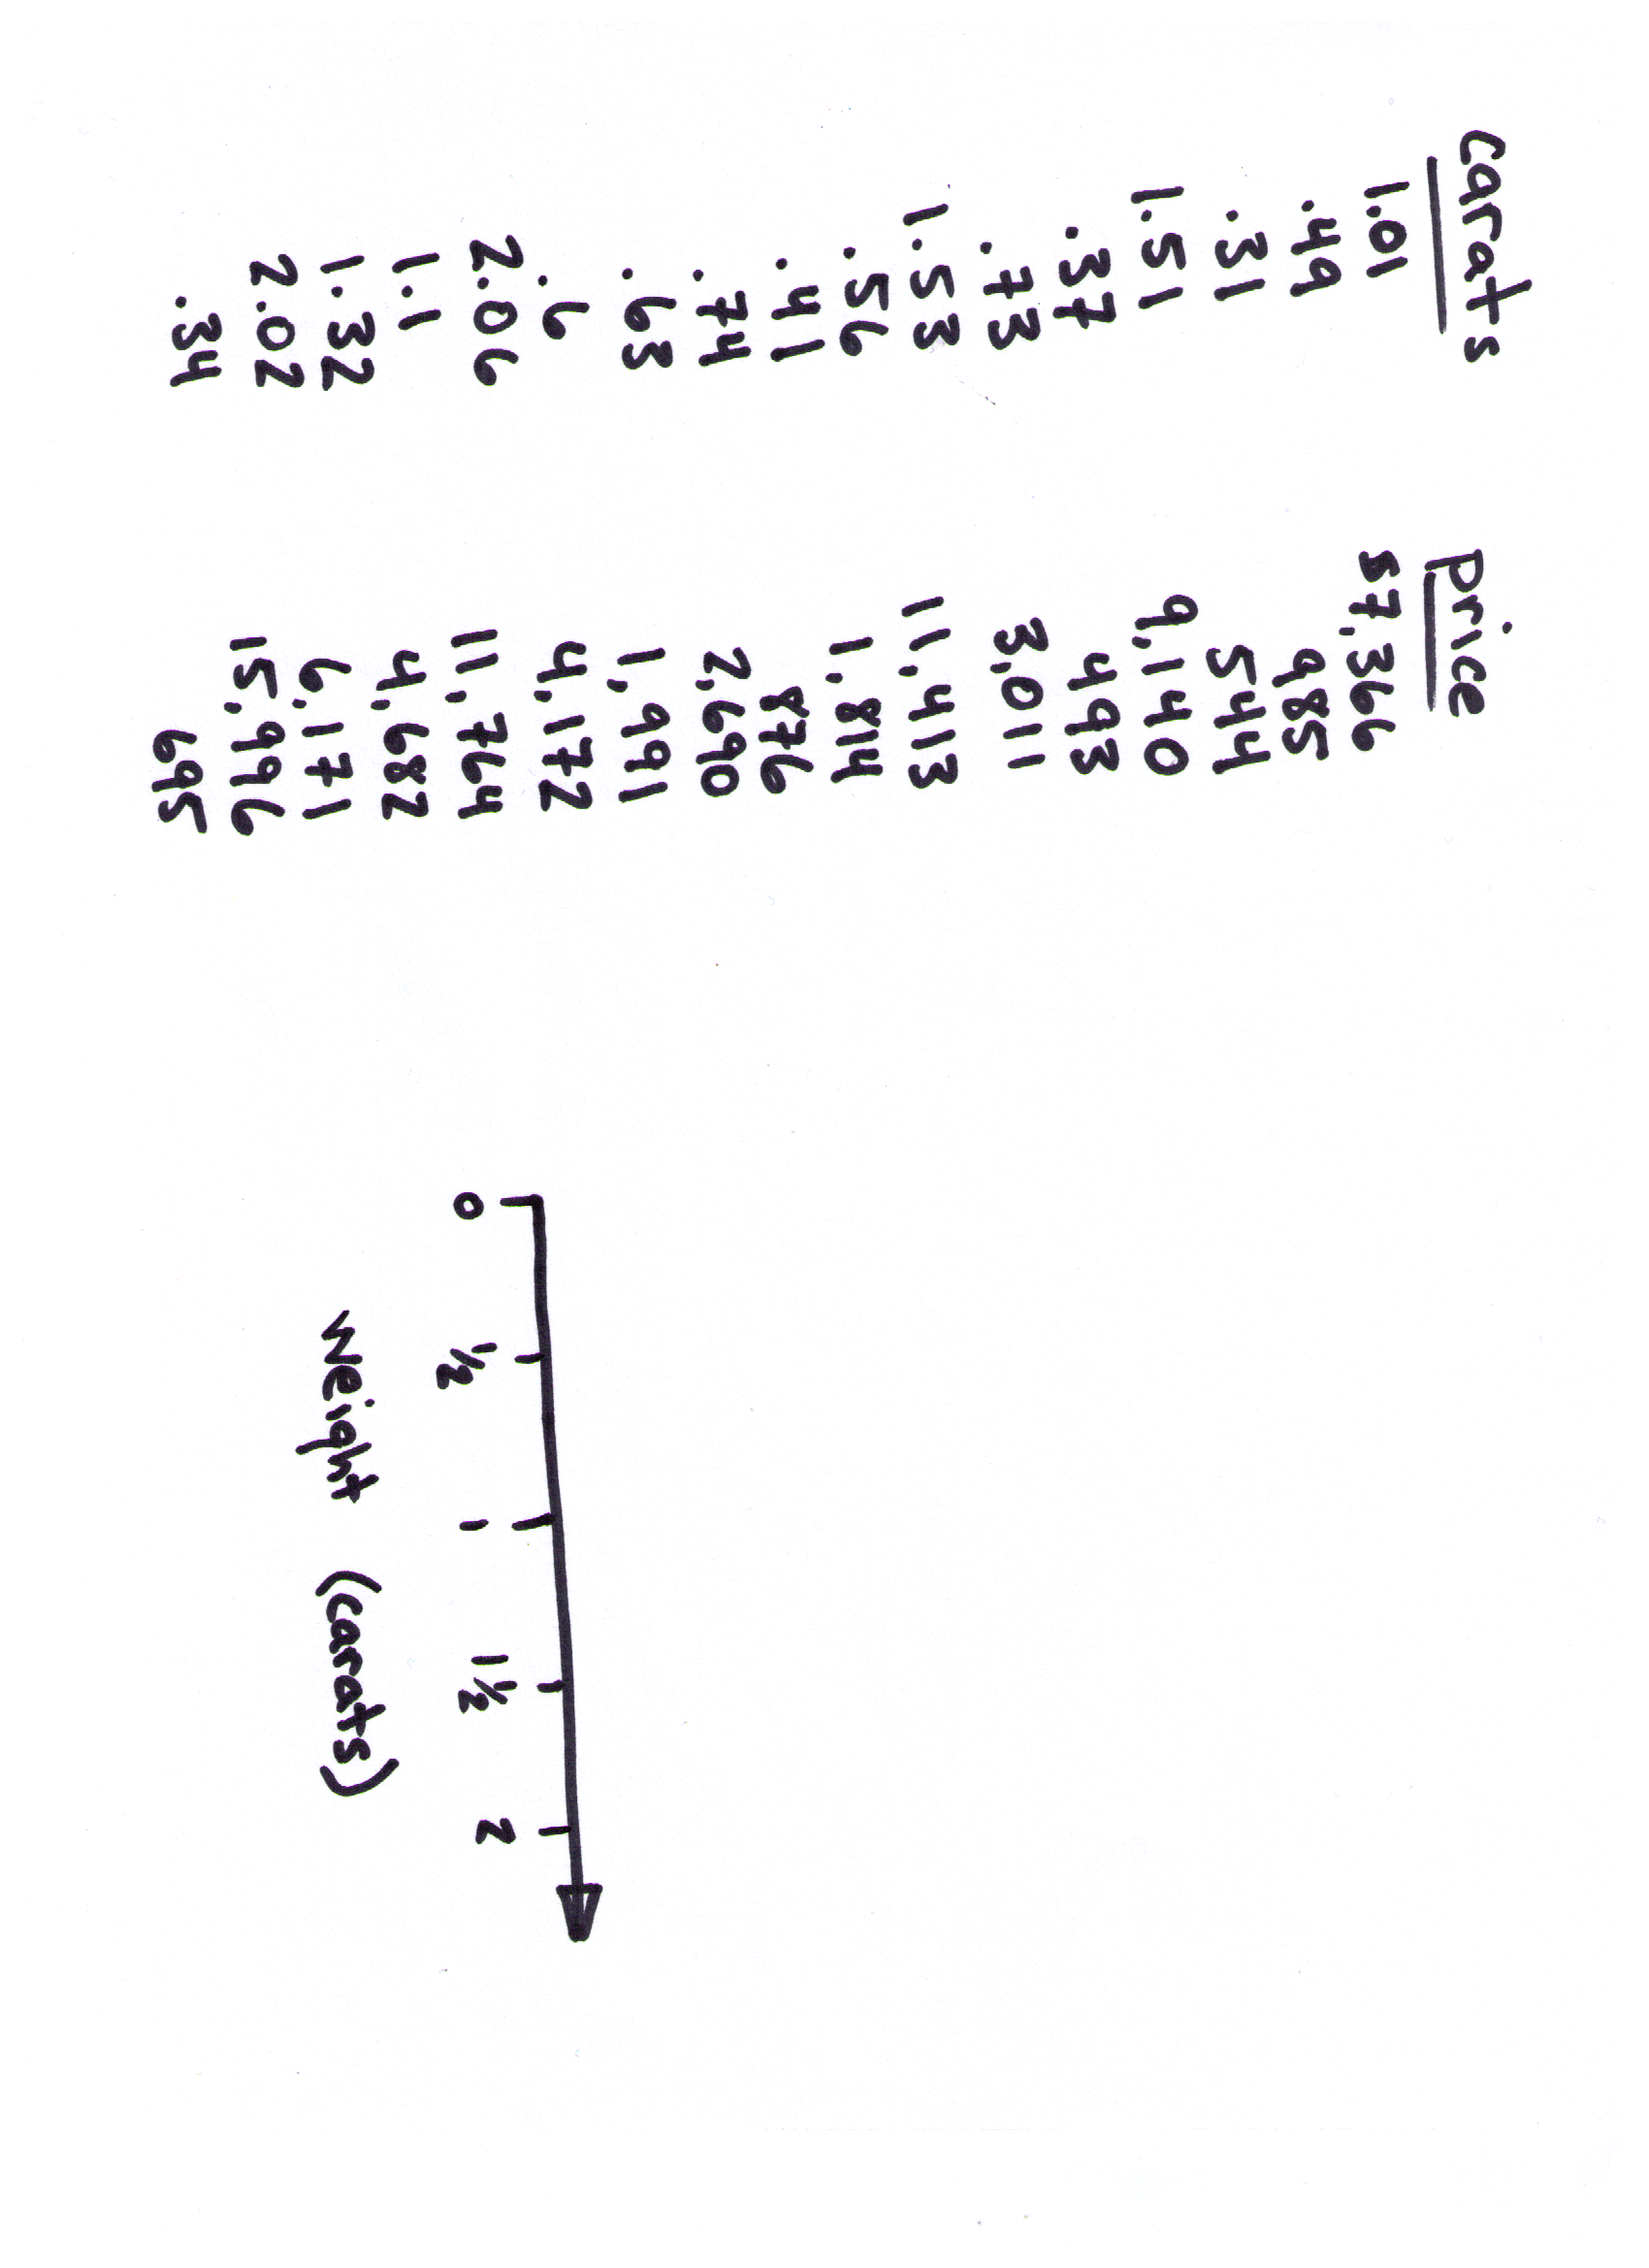 carats price
1.01 $7,366
.49 985
.31 544
1.51 9,140
.37 493
.73 3,011
1.53 11,413
.56 1,814
.41 876
.74 2,690
.63 1,991
.6 4,172
2.06 11,764
1.1 4,682
1.32 6,171
2.02 15,996
.34 695
0 1/2 1 1 1/2 2
Weight (carats)